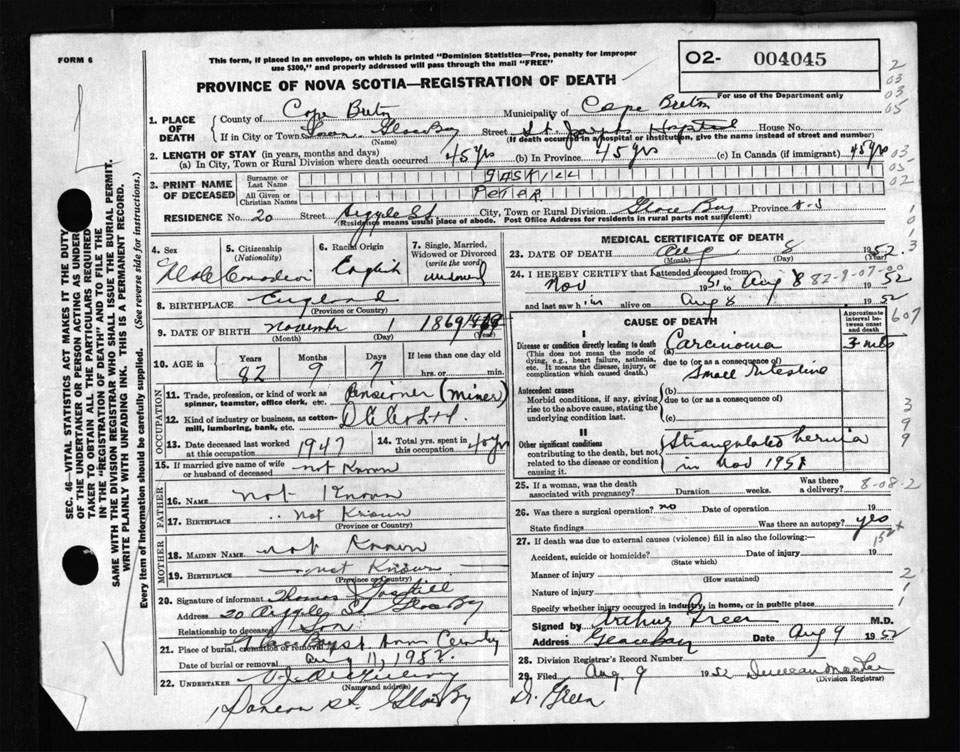 FORM 6
This form, if placed in an envelope, on which is printed "Dominion Statistics—Free, penalty for improper
use $300," and properly addressed will pass through the mail "FREE"
O2- 004045
PROVINCE OF NOVA SCOTIA—REGISTRATION OF DEATH
For use of the Department only
2
03
03
05
1. PLACE OF DEATH
County of Cape Breton Municipality of Cape Breton
If in City or Town Town Glace Bay Street St. Josephs Hospital House No.
(Name) (If death occurred in hospital or institution, give the name instead of street and number)
2. LENGTH OF STAY (in years, months and days)
(a) In City, Town or Rural Division where death occurred 45 yrs (b) In Province 45 yrs (c) In Canada (if immigrant) 45 yrs
03
05
02
3. PRINT NAME OF DECEASED
Surname or Last Name GASKILL
All Given or Christian Names PETER
RESIDENCE No. 20 Street Argyle St. City, Town or Rural Division Glace Bay Province N-S
(Residence means usual place of abode. Post Office Address for residents in rural parts not sufficient)
4. Sex Male
5. Citizenship (Nationality) Canadian
6. Racial Origin English
7. Single, Married, Widowed or Divorced (write the word) widowed
8. BIRTHPLACE England
(Province or Country)
9. DATE OF BIRTH November 1 1869
(Month) (Day) (Year)
10. AGE Years 82 Months 9 Days 7 If less than one day old hrs. or min.
OCCUPATION
11. Trade, profession, or kind of work as spinner, teamster, office clerk, etc. Pensioner (miner)
12. Kind of industry or business, as cotton-mill, lumbering, bank, etc.
13. Date deceased last worked at this occupation 1947
14. Total yrs. spent in this occupation 40 yrs
15. If married give name of wife or husband of deceased not Known
FATHER
16. NAME not Known
17. BIRTHPLACE not Known
(Province or Country)
MOTHER
18. MAIDEN NAME not Known
19. BIRTHPLACE not Known
(Province or Country)
20. Signature of informant Thomas Gaskill
Address 20 Argyle St. Glace Bay
Relationship to deceased Son
21. Place of burial, cremation or removal Glace Bay St. Anns Cemetery
Date of burial or removal Aug 11, 1952.
22. UNDERTAKER
(Name and address)
St. Glace Bay
MEDICAL CERTIFICATE OF DEATH
23. DATE OF DEATH Aug 8 1952
(Month) (Day)
24. I HEREBY CERTIFY that I attended deceased from
Nov 1951 to Aug 8 1952
82-9-07-00
and last saw him alive on Aug 8 1952
CAUSE OF DEATH
Approximate interval between onset and death
607
I
Disease or condition directly leading to death
(This does not mean the mode of dying, e.g., heart failure, asthenia, etc. It means the disease, injury, or complication which caused death.)
(a) Carcinoma 3 mos
due to (or as a consequence of)
Small Intestine
Antecedent causes
Morbid conditions, if any, giving rise to the above cause, stating the underlying condition last.
(b)
due to (or as a consequence of)
(c)
II
Other significant conditions
contributing to the death, but not related to the disease or condition causing it.
Strangulated hernia
in Nov 1951
3
9
9
25. If a woman, was the death associated with pregnancy? Duration weeks. Was there a delivery?
8-08-2
26. Was there a surgical operation? no Date of operation 19
State findings Was there an autopsy? yes
27. If death was due to external causes (violence) fill in also the following:—
Accident, suicide or homicide? Date of injury 19
(State which)
Manner of injury
(How sustained)
Nature of injury
Specify whether injury occurred in industry, in home, or in public place
Signed by Arthur Green M.D.
Address Glace Bay Date Aug 9 1952
28. Division Registrar's Record Number
29. Filed Aug. 9 1952
(Division Registrar)
Dr. Green
SEC. 46—VITAL STATISTICS ACT MAKES IT THE DUTY
OF THE UNDERTAKER OR PERSON ACTING AS UNDER-
TAKER TO OBTAIN ALL THE PARTICULARS REQUIRED
IN THE "REGISTRATION OF DEATH" AND TO FILE THE
SAME WITH THE DIVISION REGISTRAR WHO SHALL ISSUE THE BURIAL PERMIT.
WRITE PLAINLY WITH UNFADING INK. THIS IS A PERMANENT RECORD.
Every item of information should be carefully supplied. (See reverse side for instructions.)